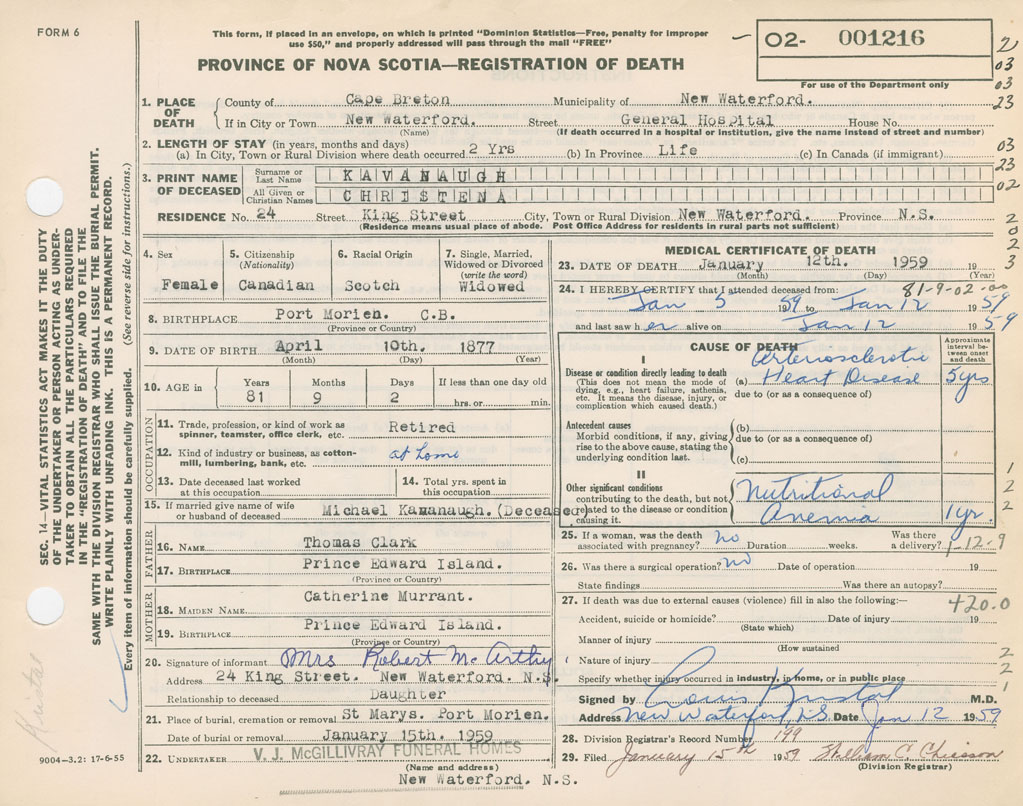 FORM 6
This form, if placed in an envelope, on which is printed "Dominion Statistics—Free, penalty for improper
use $50," and properly addressed will pass through the mail "FREE"
O2- 001216
PROVINCE OF NOVA SCOTIA—REGISTRATION OF DEATH
For use of the Department only
2
03
03
23
03
23
02
2
0
2
3
SEC. 14—VITAL STATISTICS ACT MAKES IT THE DUTY
OF THE UNDERTAKER OR PERSON ACTING AS UNDER-
TAKER TO OBTAIN ALL THE PARTICULARS REQUIRED
IN THE "REGISTRATION OF DEATH" AND TO FILE THE
SAME WITH THE DIVISION REGISTRAR WHO SHALL ISSUE THE BURIAL PERMIT.
WRITE PLAINLY WITH UNFADING INK. THIS IS A PERMANENT RECORD.
Every item of information should be carefully supplied. (See reverse side for instructions.)
1. PLACE OF DEATH County of Cape Breton Municipality of New Waterford.
If in City or Town New Waterford. Street General Hospital House No.
(Name) (If death occurred in a hospital or institution, give the name instead of street and number)
2. LENGTH OF STAY (in years, months and days)
(a) In City, Town or Rural Division where death occurred 2 Yrs (b) In Province Life (c) In Canada (if immigrant)
3. PRINT NAME OF DECEASED Surname or Last Name KAVANAUGH
All Given or Christian Names CHRISTENA
RESIDENCE No. 24 Street King Street City, Town or Rural Division New Waterford. Province N.S.
(Residence means usual place of abode. Post Office Address for residents in rural parts not sufficient)
4. Sex 5. Citizenship (Nationality) 6. Racial Origin 7. Single, Married, Widowed or Divorced (write the word)
Female Canadian Scotch Widowed
8. BIRTHPLACE Port Morien. C.B.
(Province or Country)
9. DATE OF BIRTH April 10th. 1877
(Month) (Day) (Year)
10. AGE in Years Months Days If less than one day old
81 9 2 hrs. or min.
OCCUPATION
11. Trade, profession, or kind of work as spinner, teamster, office clerk, etc. Retired
12. Kind of industry or business, as cotton-mill, lumbering, bank, etc. at home
13. Date deceased last worked at this occupation
14. Total yrs. spent in this occupation
15. If married give name of wife or husband of deceased Michael Kavanaugh. (Deceased)
FATHER
16. NAME Thomas Clark
17. BIRTHPLACE Prince Edward Island.
(Province or Country)
MOTHER
18. MAIDEN NAME Catherine Murrant.
19. BIRTHPLACE Prince Edward Island.
(Province or Country)
20. Signature of informant Mrs Robert McArthy
Address 24 King Street. New Waterford. N.S.
Relationship to deceased Daughter
21. Place of burial, cremation or removal St Marys. Port Morien.
Date of burial or removal January 15th. 1959
22. UNDERTAKER V. J. McGILLIVRAY FUNERAL HOMES
(Name and address)
New Waterford. N.S.
MEDICAL CERTIFICATE OF DEATH
23. DATE OF DEATH January 12th. 1959 19
(Month) (Day) (Year)
24. I HEREBY CERTIFY that I attended deceased from: 81-9-02-00
Jan 5 1959 to Jan 12 1959
and last saw her alive on Jan 12 1959
CAUSE OF DEATH
Approximate interval between onset and death
I
Disease or condition directly leading to death
(This does not mean the mode of dying, e.g., heart failure, asthenia, etc. It means the disease, injury, or complication which caused death.)
(a) Arteriosclerotic Heart Disease 5 yrs
due to (or as a consequence of)
Antecedent causes
Morbid conditions, if any, giving rise to the above cause, stating the underlying condition last.
(b)
due to (or as a consequence of)
(c)
II
Other significant conditions
contributing to the death, but not related to the disease or condition causing it.
Nutritional Anemia 1 yr.
1
2
2
25. If a woman, was the death associated with pregnancy? no Duration weeks. Was there a delivery? 1-12-9
26. Was there a surgical operation? no Date of operation 19
State findings Was there an autopsy?
27. If death was due to external causes (violence) fill in also the following:— 420.0
Accident, suicide or homicide? Date of injury 19
(State which)
Manner of injury
(How sustained
Nature of injury
Specify whether injury occurred in industry, in home, or in public place
2
2
1
Signed by Louis Kristal M.D.
Address New Waterford, N.S. Date Jan 12 1959
28. Division Registrar's Record Number 199
29. Filed January 15th 1959 William C. Chiasson
(Division Registrar)
Kristal
9004-3.2: 17-6-55